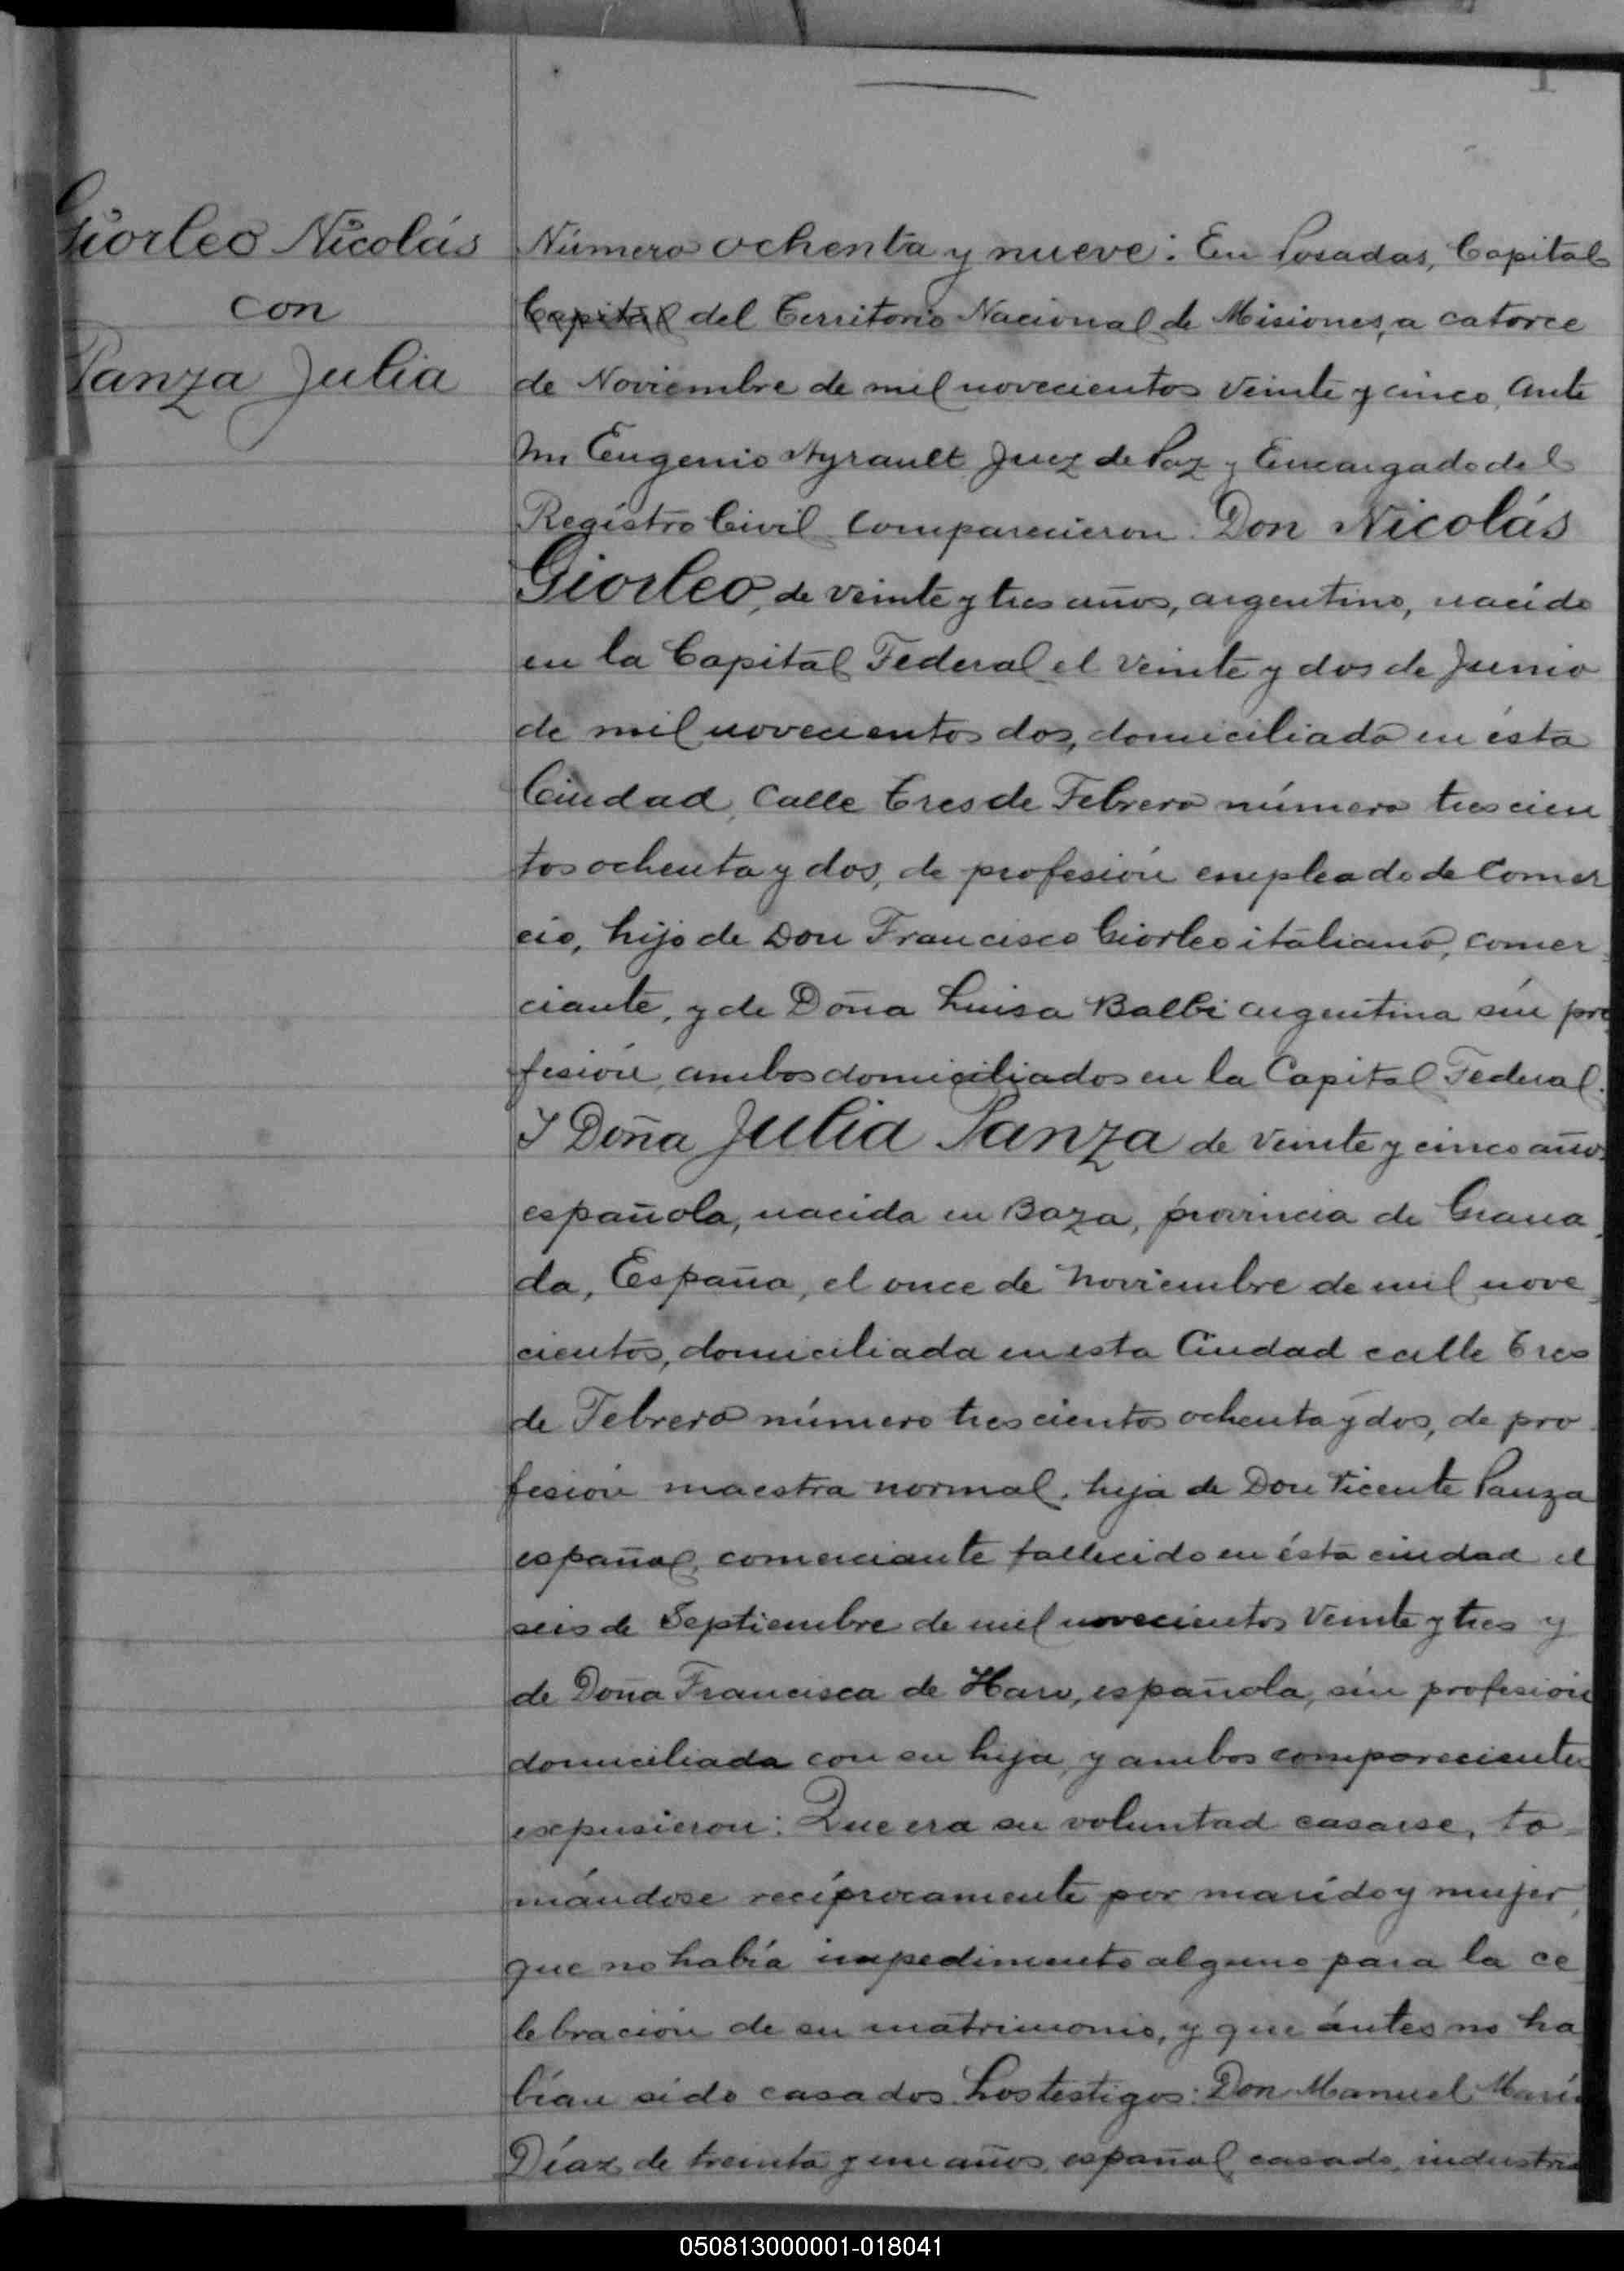 1
Giorleo Nicolás
con
Panza Julia
Número ochenta y nueve: En Posadas, Capital
Capital del Territorio Nacional de Misiones, a catorce
de Noviembre de mil novecientos veinte y cinco, ante
mi Eugenio Ayrault Juez de Paz y Encargado del
Registro Civil comparecieron: Don Nicolás
Giorleo, de veinte y tres años, argentino, nacido
en la Capital Federal el veinte y dos de Junio
de mil novecientos dos, domiciliado en ésta
Ciudad, Calle Tres de Febrero número trescien
tos ochenta y dos, de profesión empleado de Comer
cio, hijo de Don Francisco Giorleo italiano, comer
ciante, y de Doña Luisa Balbi argentina sin pro
fesión, ambos domiciliados en la Capital Federal.
Y Doña Julia Panza de veinte y cinco años
española, nacida en Baza, provincia de Grana
da, España, el once de Noviembre de mil nove
cientos, domiciliada en esta Ciudad calle Tres
de Febrero número trescientos ochenta y dos, de pro
fesión maestra normal, hija de Don Vicente Panza
español, comerciante fallecido en ésta ciudad el
seis de Septiembre de mil novecientos veinte y tres y
de Doña Francisca de Haro, española, sin profesión
domiciliada con su hija, y ambos comparecientes
expusieron: Que era su voluntad casarse, to-
mándose recíprocamente por marido y mujer,
que no había impedimento alguno para la ce
lebración de su matrimonio, y que ántes no ha
bían sido casados. Los testigos: Don Manuel María
Díaz de treinta y un años, español, casado, industria
050813000001-018041